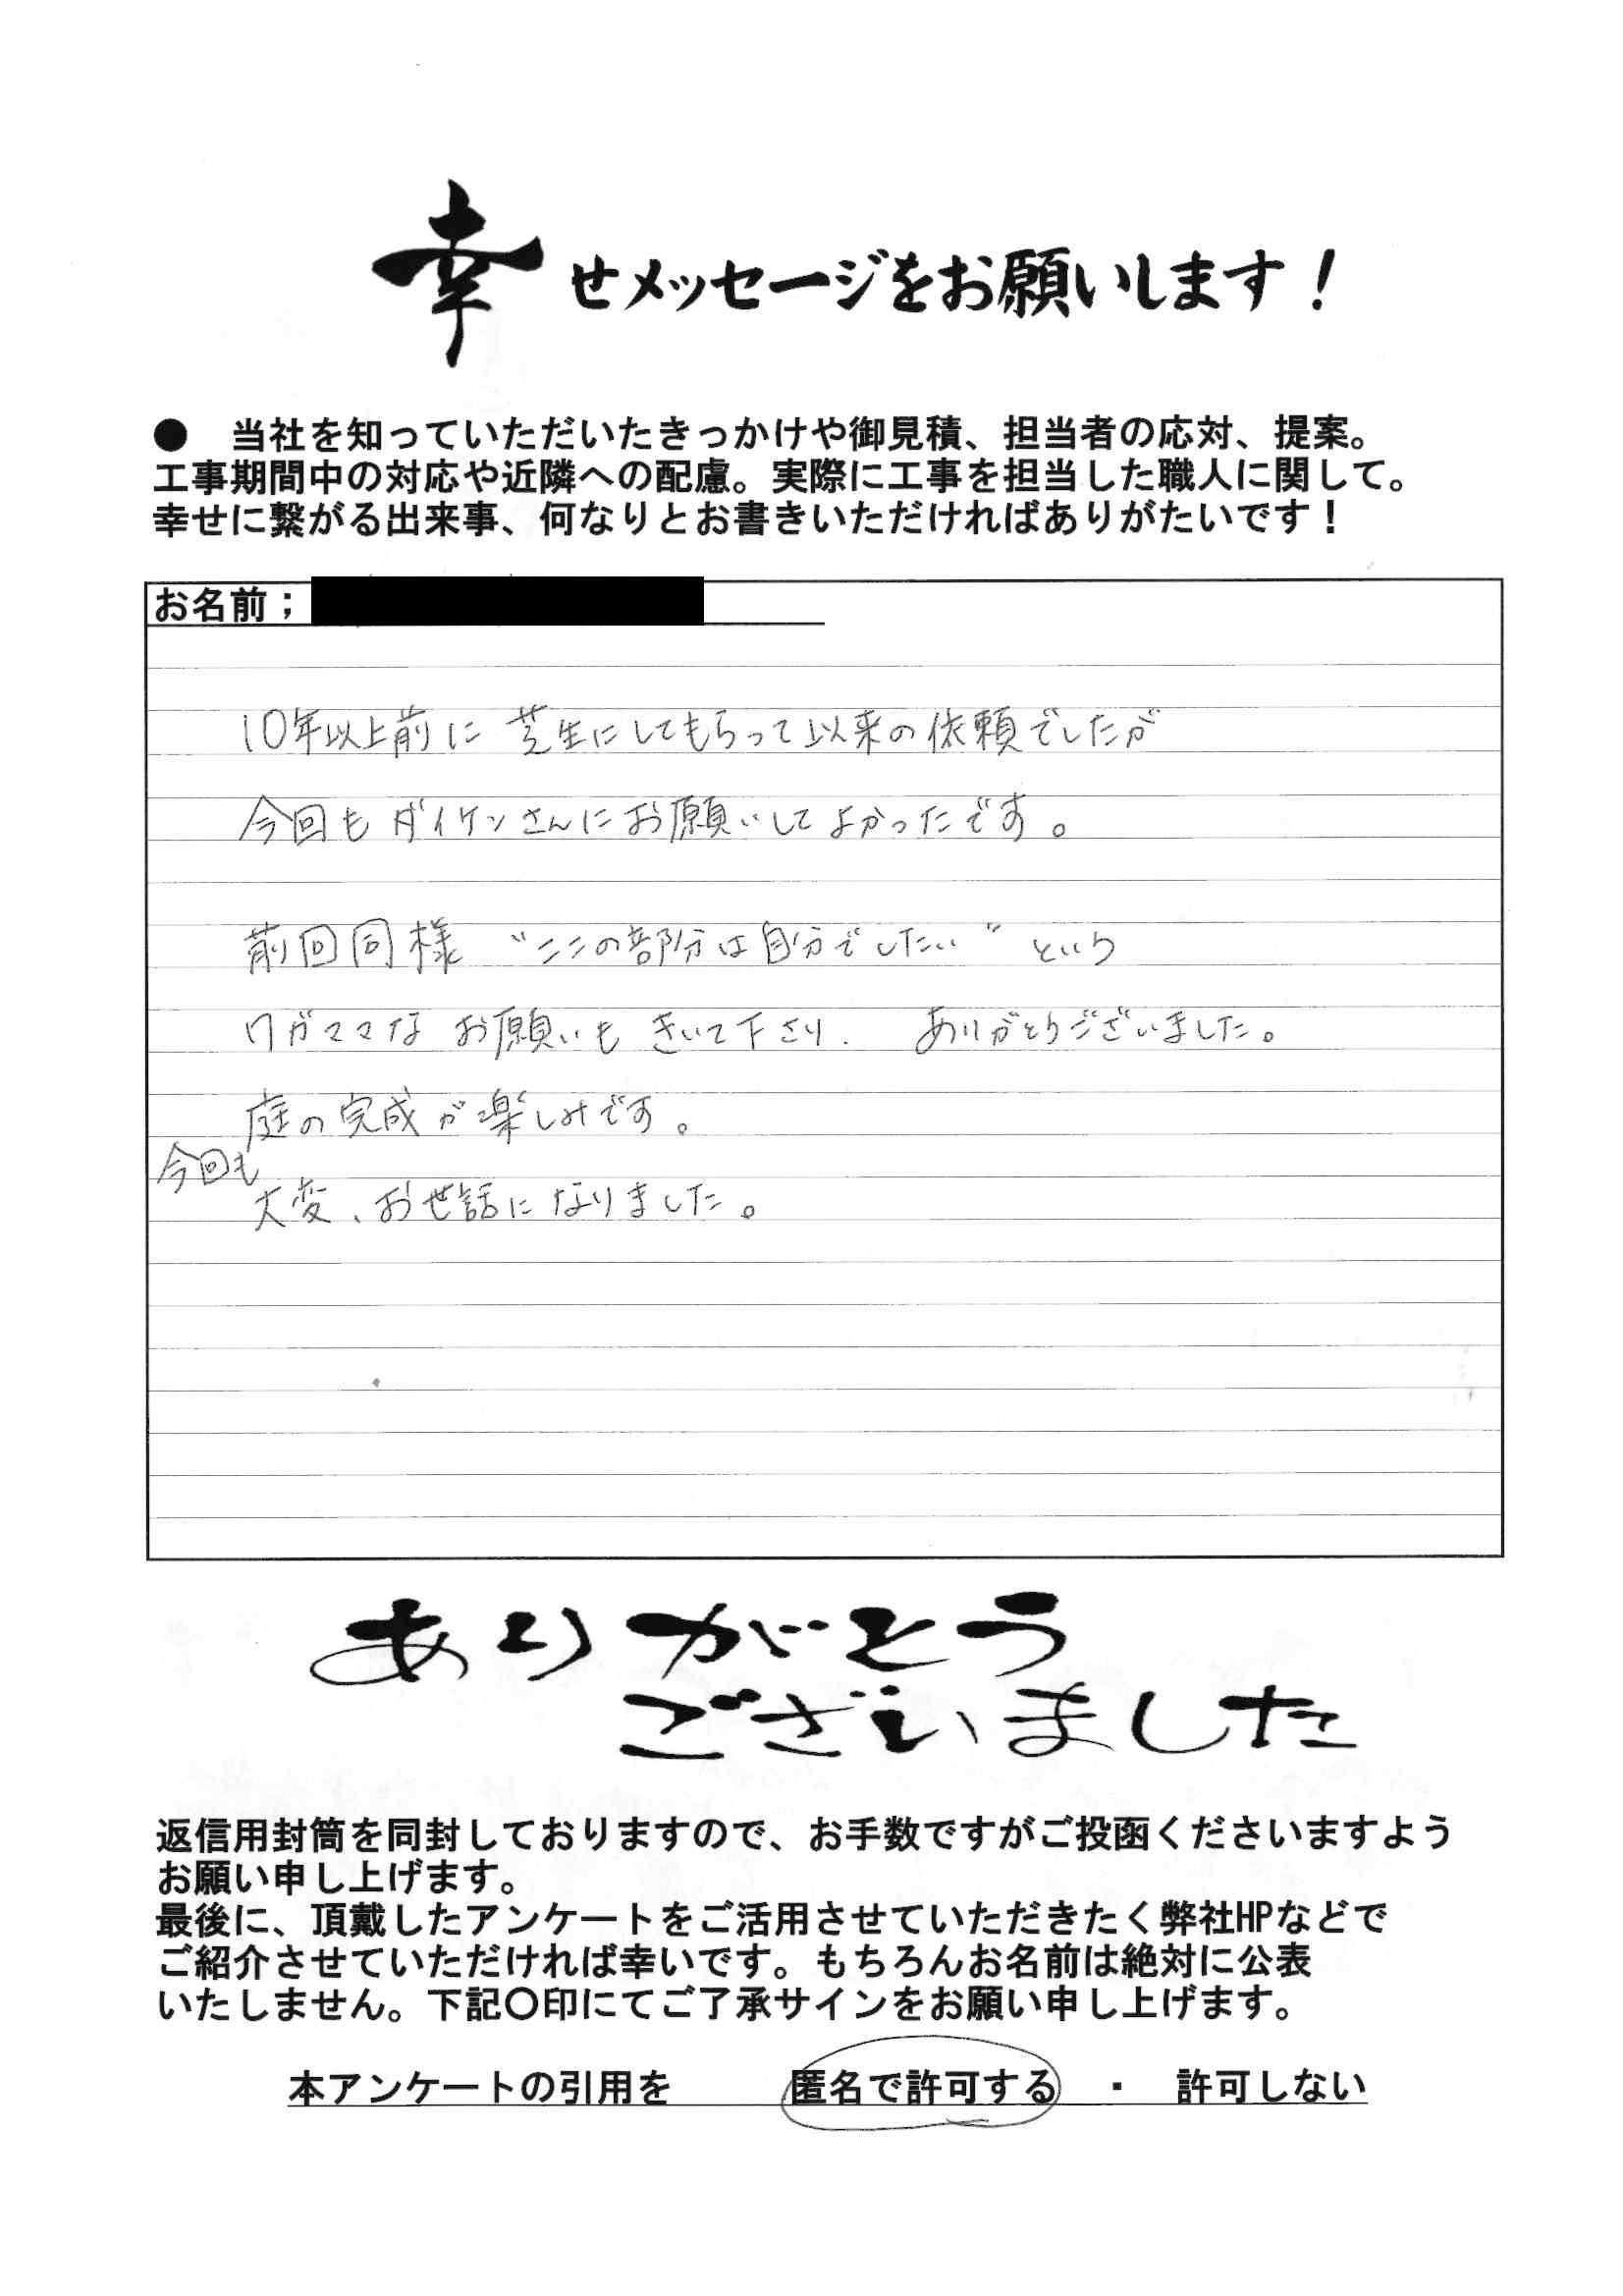 幸せメッセージをお願いします！
●　当社を知っていただいたきっかけや御見積、担当者の応対、提案。
工事期間中の対応や近隣への配慮。実際に工事を担当した職人に関して。
幸せに繋がる出来事、何なりとお書きいただければありがたいです！
お名前；
10年以上前に 芝生にしてもらって以来の依頼でしたが
今回も ダイケンさんにお願いして よかったです。
前回同様 “ここの部分は自分でしたい” という
ワガママな お願いも きいて下さり. ありがとうございました。
庭の完成が楽しみです。
今回も
大変、お世話に なりました。
ありがとう
ございました
返信用封筒を同封しておりますので、お手数ですがご投函くださいますよう
お願い申し上げます。
最後に、頂戴したアンケートをご活用させていただきたく弊社HPなどで
ご紹介させていただければ幸いです。もちろんお名前は絶対に公表
いたしません。下記〇印にてご了承サインをお願い申し上げます。
本アンケートの引用を　匿名で許可する　・　許可しない